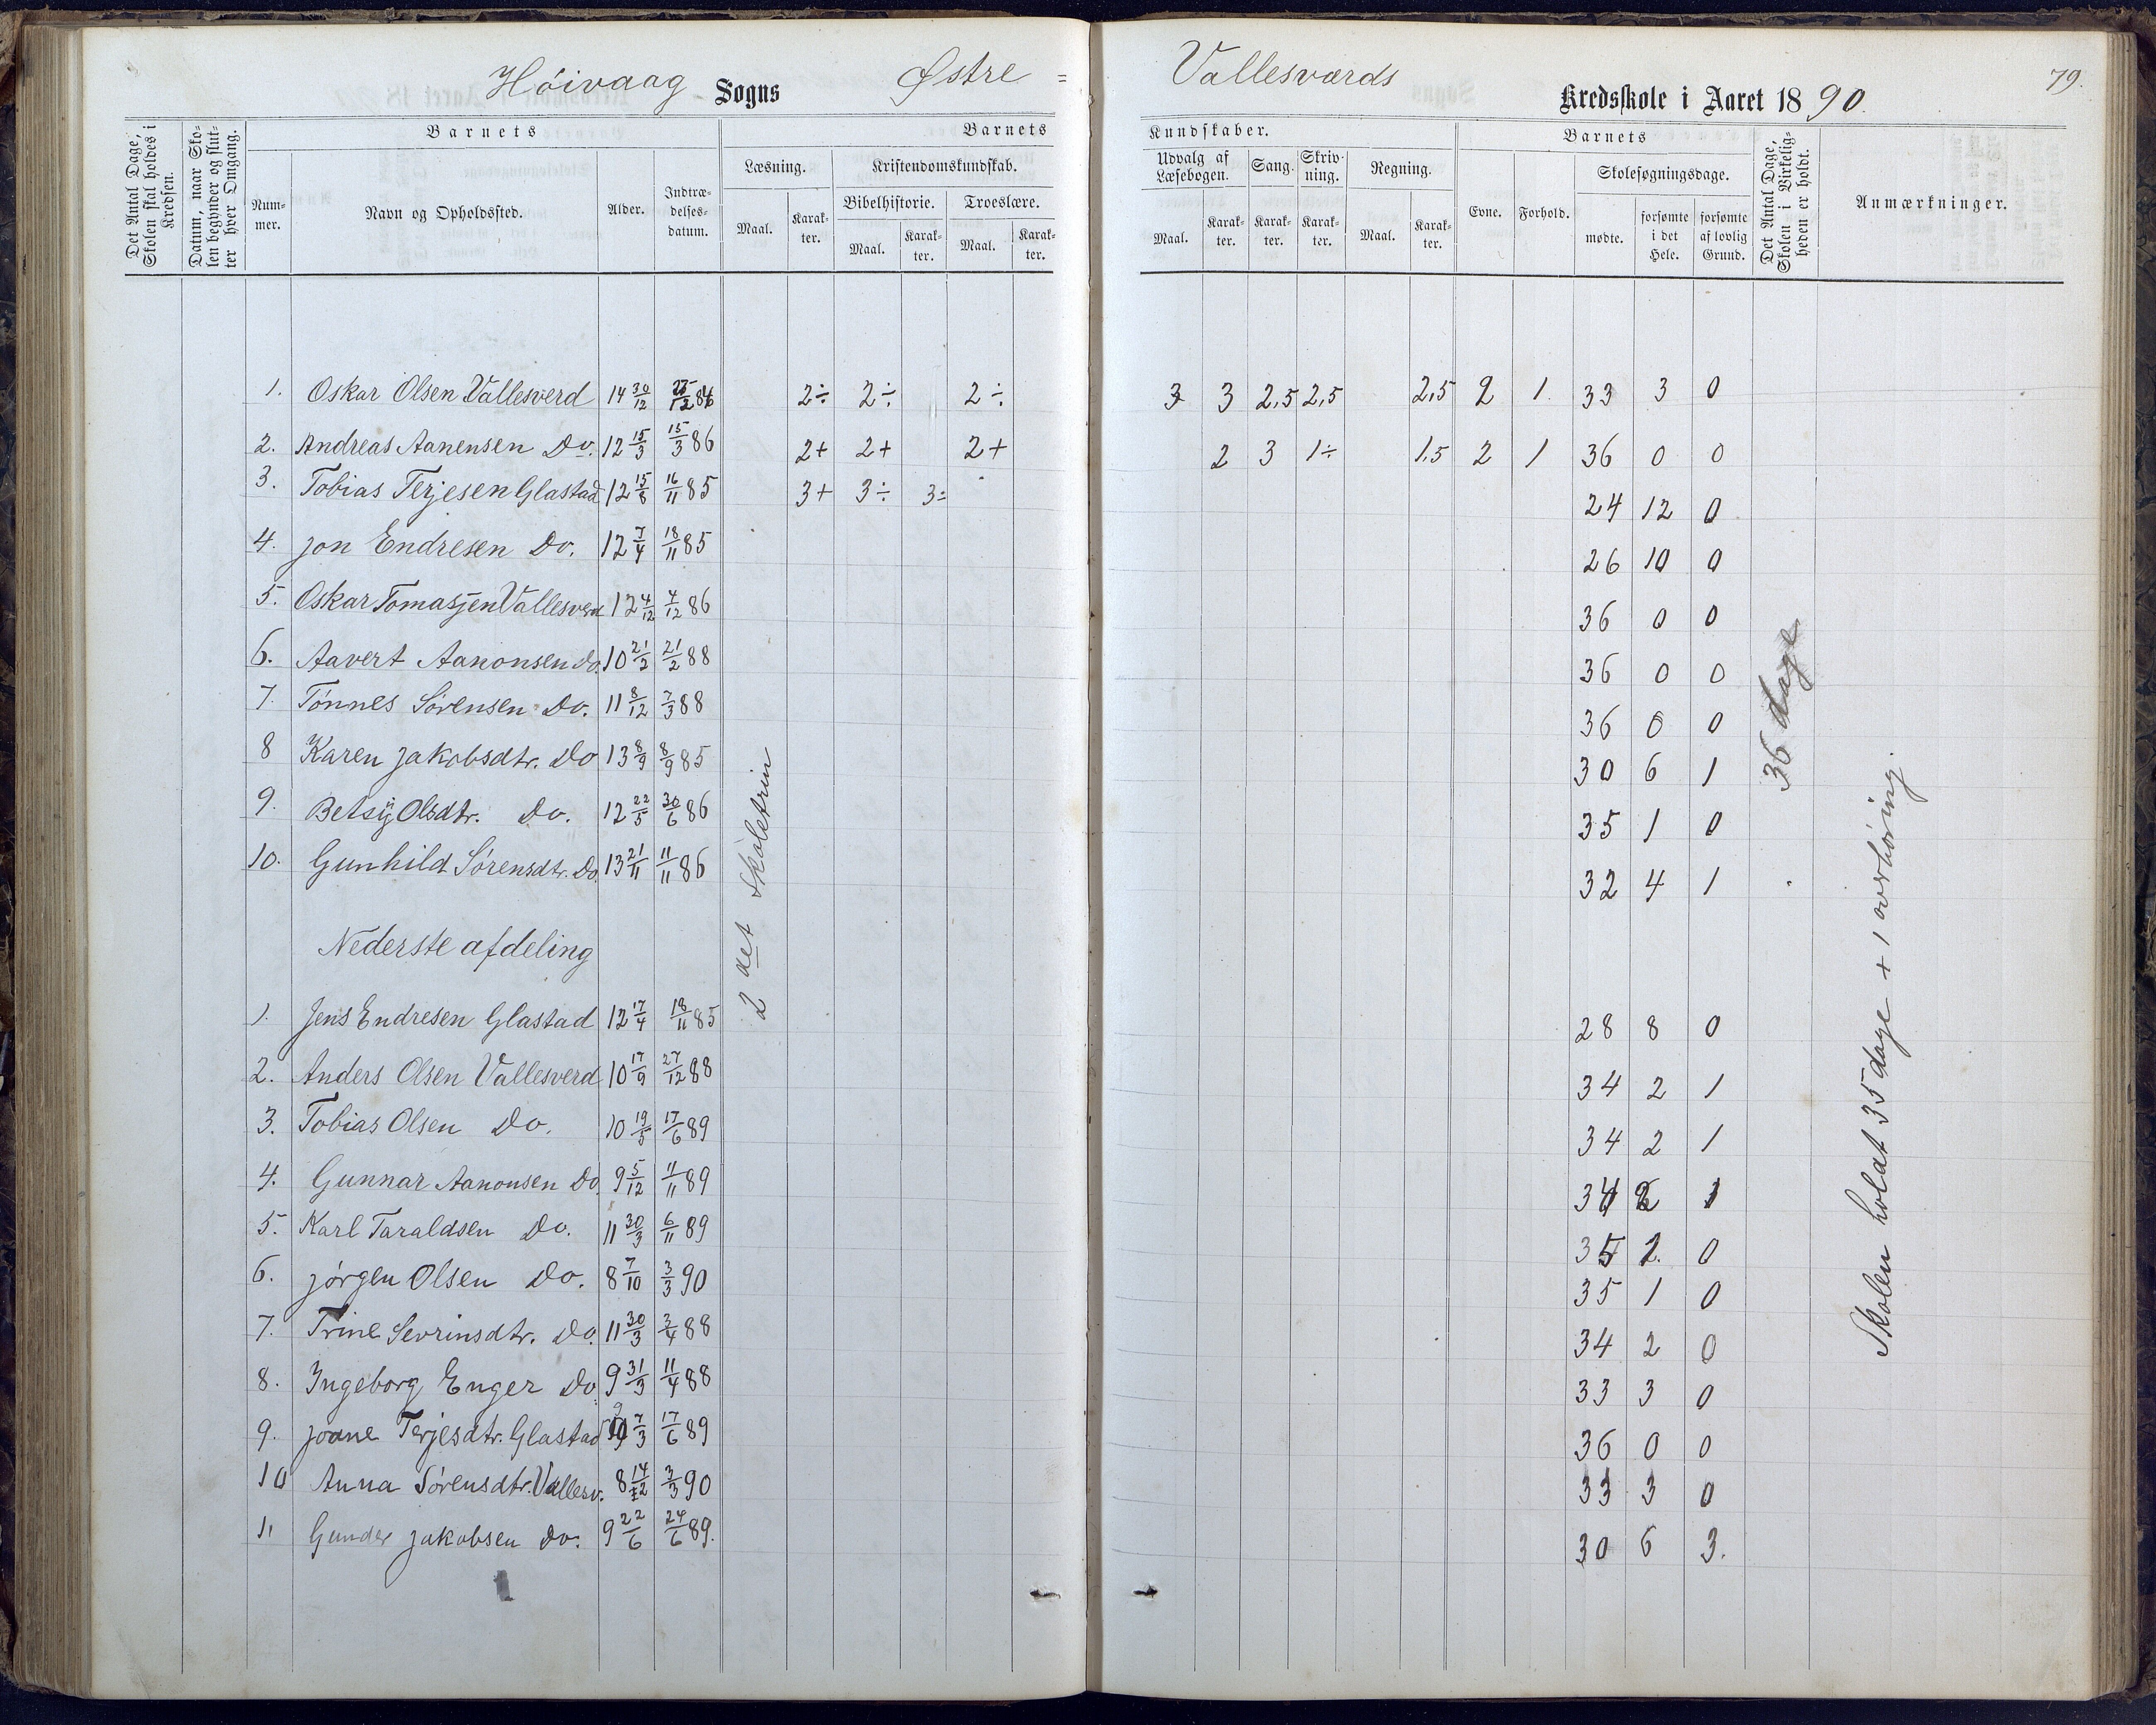 Höivaag Sogns Østre = Vallesværds Kredsskole i Aaret 1890. 79.
Det Antal Dage, Skolen skal holdes i Kredsen.
Datum, naar Skolen begynder og slutter hver Omgang.
Barnets
Nummer.
Navn og Opholdssted.
Alder.
Indtrædelsesdatum.
Barnets Kundskaber.
Læsning.
Kristendomskundskab.
Bibelhistorie. Troeslære.
Maal. Karakter. Maal. Karakter. Maal. Karakter.
Udvalg af Læsebogen. Sang. Skrivning. Regning.
Maal. Karakter. Karakter. Karakter. Maal. Karakter.
Barnets
Evne. Forhold. Skolesøgningsdage.
mødte. forsømte i det Hele. forsømte af lovlig Grund.
Det Antal Dage, Skolen i Virkeligheden er holdt.
Anmærkninger.
1. Oskar Olsen Vallesverd 14 30/12 2÷ 2÷ 2÷ 3 3 2,5 2,5 2,5 2 1 33 3 0
2. Andreas Aanensen Do. 12 15/3 15/3 86 2+ 2+ 2+ 2 3 1÷ 1,5 2 1 36 0 0
3. Tobias Terjesen Glastad 12 15/8 16/11 85 3+ 3÷ 3= 24 12 0
4. Jon Endresen Do. 12 7/4 18/11 85 26 10 0
5. Oskar Tomasjen Vallesverd 12 4/12 4/12 86 36 0 0
6. Aavert Aanonsen Do. 10 21/2 21/2 88 36 0 0
7. Tönnes Sörensen Do. 11 8/12 7/3 88 36 0 0
8 Karen Jakobsdtr. Do 13 8/9 8/9 85 30 6 1
9. Betsÿ Olsdtr. Do. 12 22/5 30/6 86 35 1 0
10. Gunhild Sörensdtr. Do. 13 21/11 11/11 86 32 4 1
Nederste afdeling
1. Jens Endresen Glastad 12 17/4 18/11 85 28 8 0
2. Anders Olsen Vallesverd 10 17/9 27/12 88 34 2 1
3. Tobias Olsen Do. 10 19/5 17/6 89 34 2 1
4. Gunnar Aanonsen Do. 9 5/12 11/11 89
5. Karl Taraldsen Do. 11 30/3 6/11 89 35 1. 0
6. Jörgen Olsen Do. 8 7/10 3/3 90 35 1 0
7. Trine Sevrinsdtr. Do. 11 30/3 3/4 88 34 2 0
8. Ingeborg Enger Do 9 31/3 11/4 88 33 3 0
9. Joane Terjesdtr. Glastad 9 7/3 17/6 89 36 0 0
10 Anna Sörensdtr. Vallesv. 8 14/12 3/3 90 33 3 0
11 Gunder Jakobsen Do. 9 22/6 24/6 89. 30 6 3.
2 det Skoletrin
36 dage
Skolen holdt 35 dage + 1 overhöring.